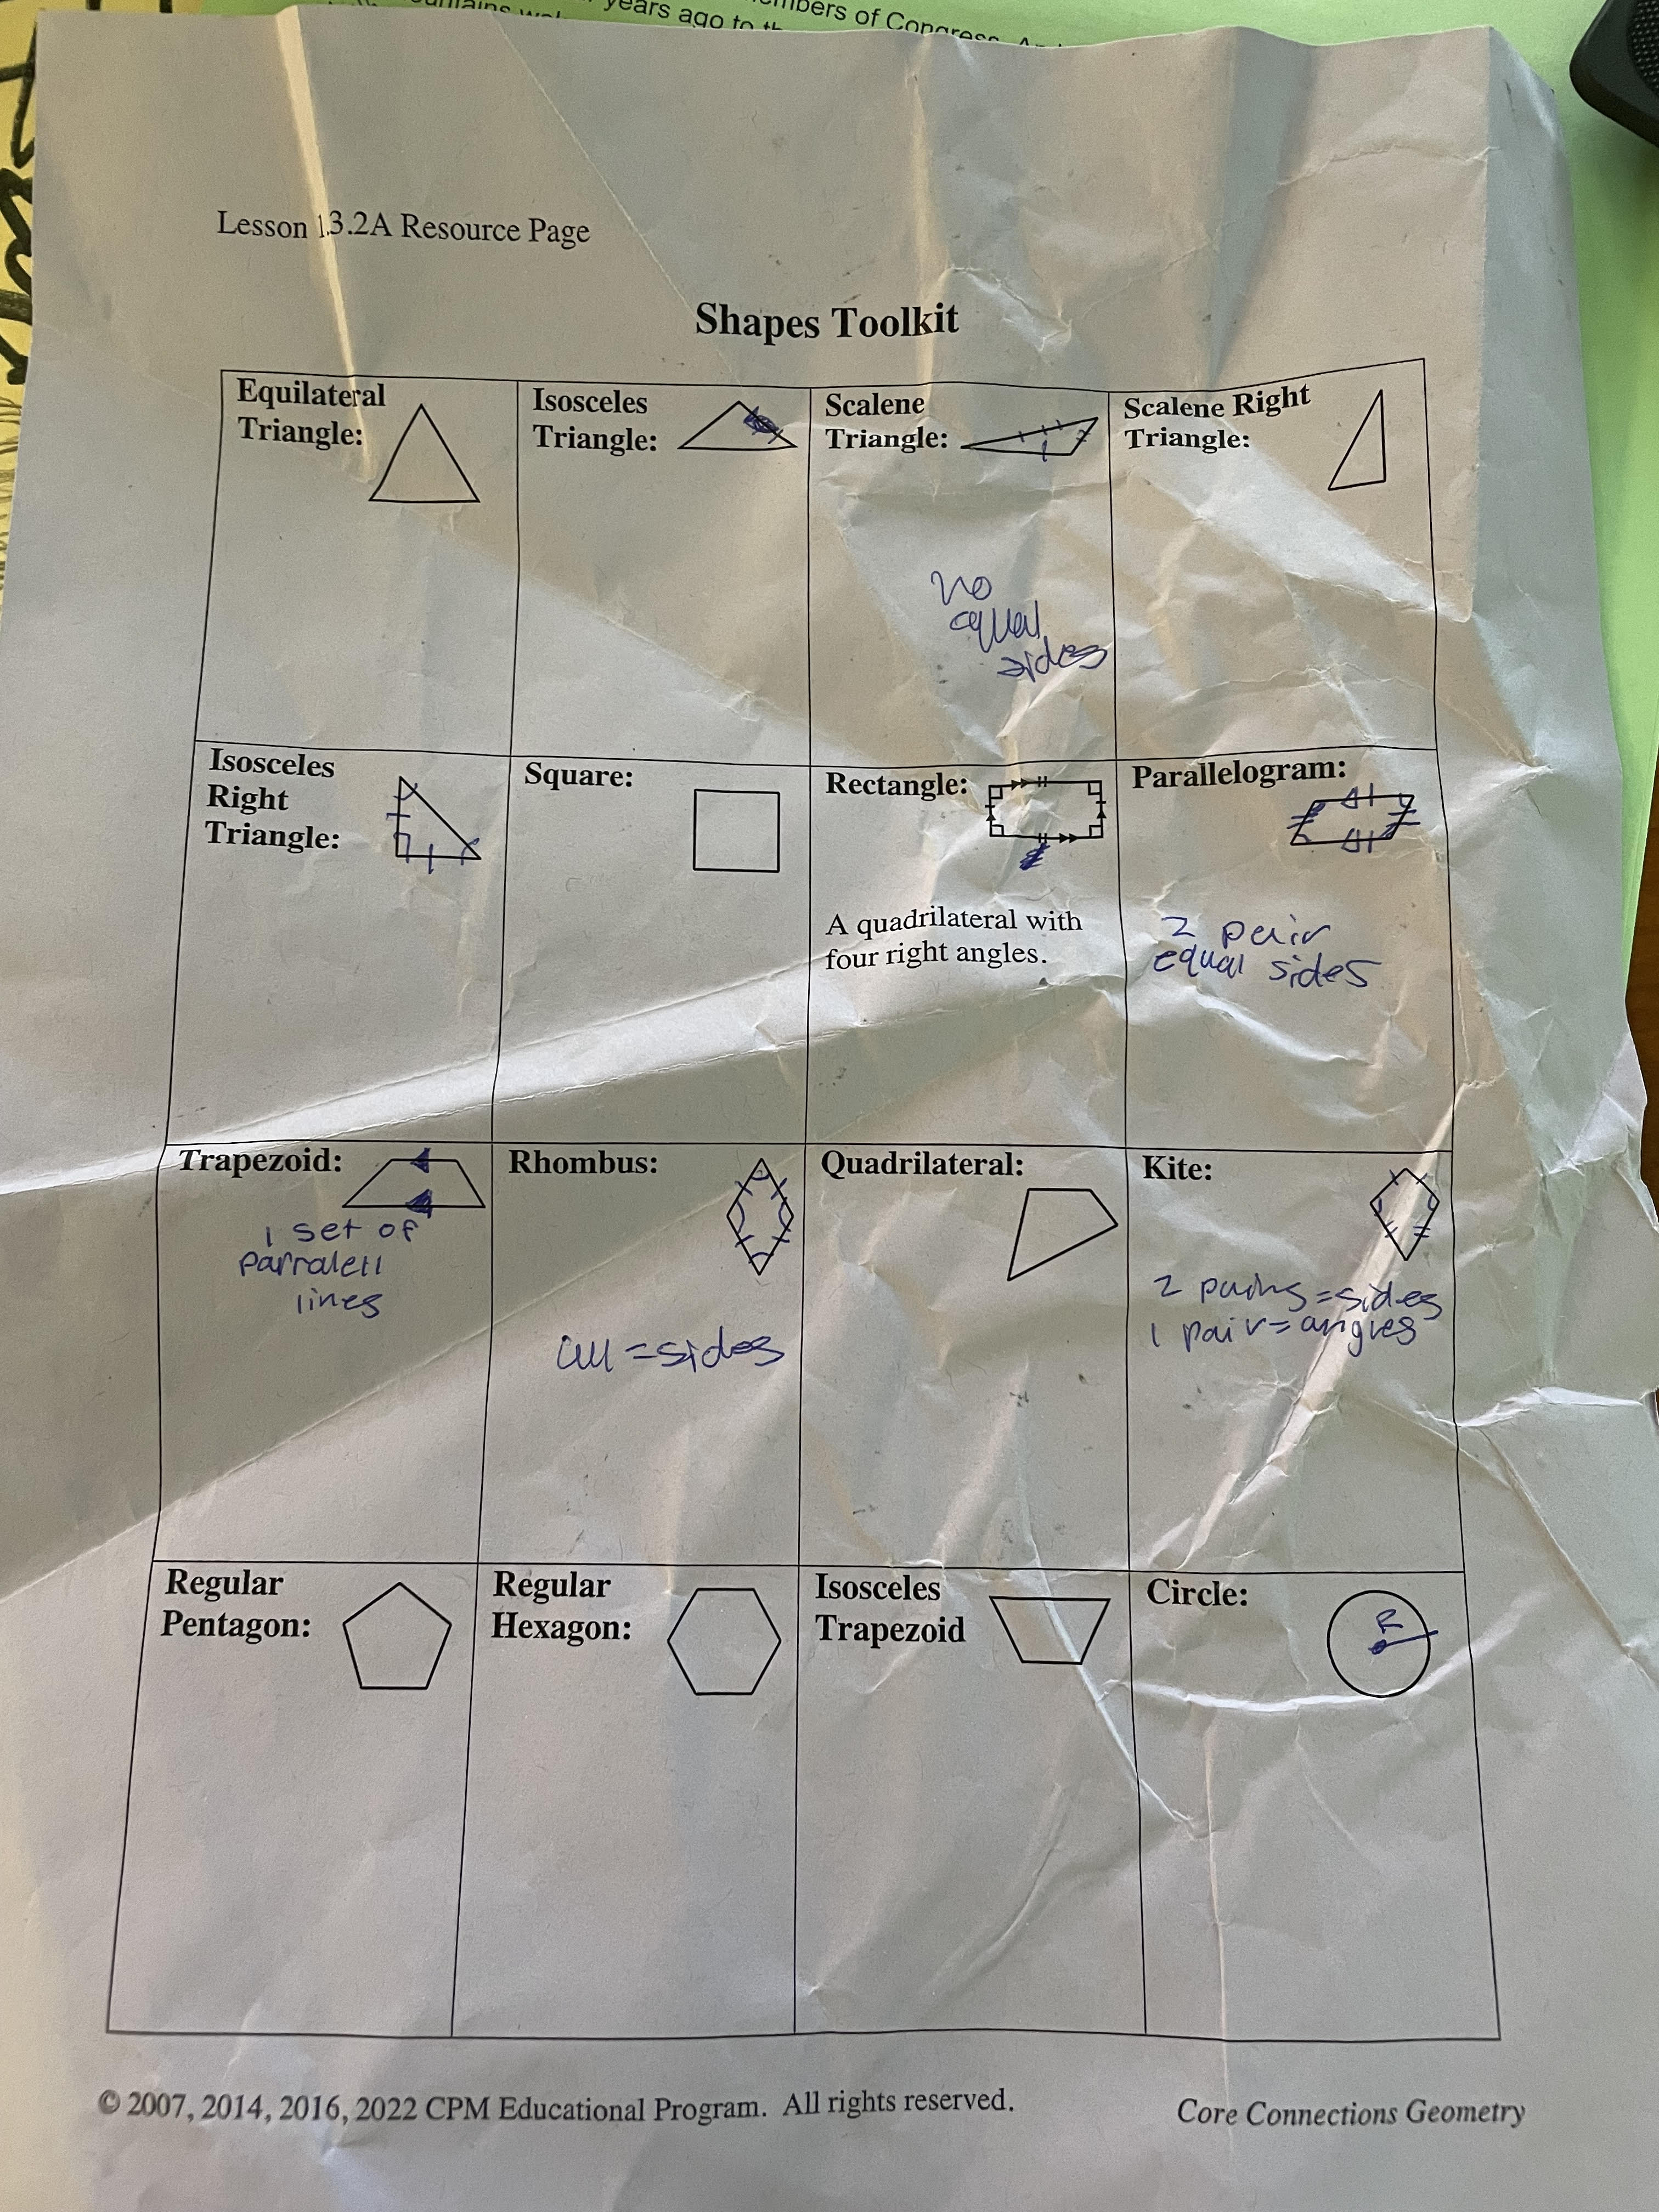 years ago to th
mbers of Congress.
Lesson 1.3.2A Resource Page
Shapes Toolkit
Equilateral
Triangle:
Isosceles
Triangle:
Scalene
Triangle:
no
equal
sides
Scalene Right
Triangle:
Isosceles
Right
Triangle:
Square:
Rectangle:
A quadrilateral with
four right angles.
Parallelogram:
2 pair
equal sides
Trapezoid:
1 set of
parralell
lines
Rhombus:
all = sides
Quadrilateral:
Kite:
2 pairs = sides
1 pair = angles
Regular
Pentagon:
Regular
Hexagon:
Isosceles
Trapezoid
Circle:
R
© 2007, 2014, 2016, 2022 CPM Educational Program. All rights reserved.
Core Connections Geometry